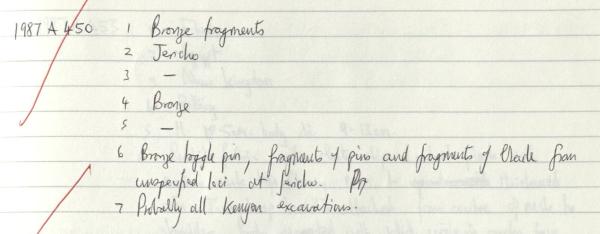 1987 A 450 1 Bronze fragments
2 Jericho
3 —
4 Bronze
5 —
6 Bronze toggle pin, fragments of pins and fragments of blade from
unspecified loci at Jericho.
7 Probably all Kenyon excavations.